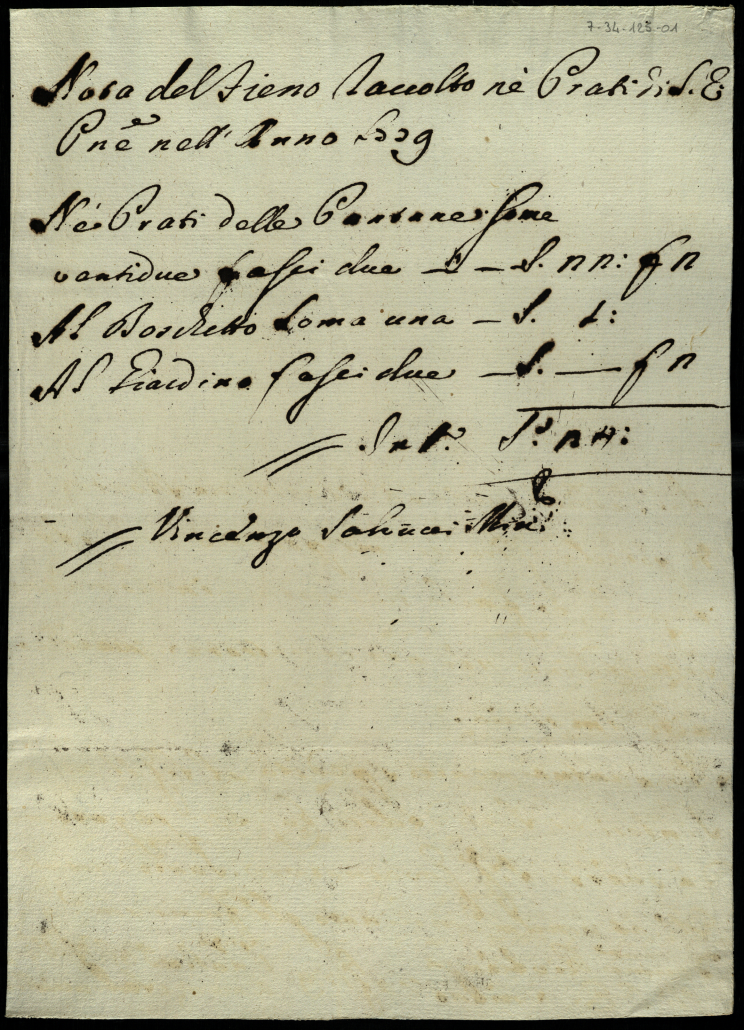 7-34-125-01
Nota del Fieno Raccolto nè Prati di S. E.
Pnē nell' Anno 1779
Nè Prati delle Pantane Some
ventidue fasci due — S. 22: f 2
Al Boschetto Soma una — S. 1:
Al Giardino fasci due — S. — f 2
S.
Vincenzo Min: